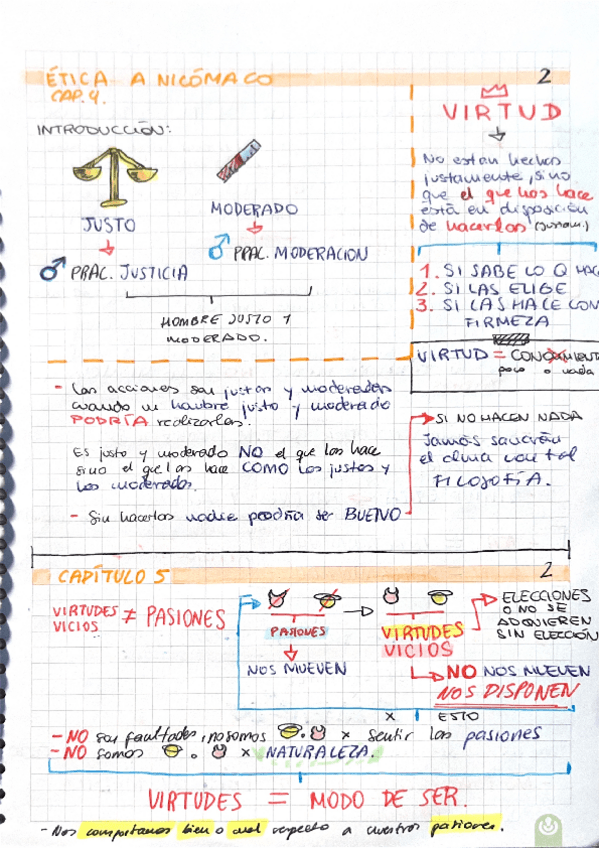 ÉTICA A NICÓMACO
CAP. 4.
2
INTRODUCCIÓN:
JUSTO
PRAC. JUSTICIA
MODERADO
PRAC. MODERACION
HOMBRE JUSTO Y
MODERADO.
VIRTUD
No están hechas
justamente, sino
que el que las hace
está en disposición
de hacerlas
1. SI SABE LO Q HAC
2. SI LAS ELIGE
3. SI LAS HACE CON
FIRMEZA
VIRTUD =
poco o nada
- Las acciones son justas y moderadas
cuando un hombre justo y moderado
PODRÍA realizarlas.
Es justo y moderado NO el que las hace
sino el que las hace COMO los justos y
los moderados.
- Sin hacerlas nadie podría ser BUENO
SI NO HACEN NADA
Jamás sanarán
el alma con tal
FILOSOFÍA.
CAPÍTULO 5
2
VIRTUDES
VICIOS
≠ PASIONES
PASIONES
NOS MUEVEN
VIRTUDES
VICIOS
ELECCIONES
O NO SE
ADQUIEREN
SIN ELECCIÓN
NO NOS MUEVEN
NOS DISPONEN
x ESTO
- NO son facultades, no somos . x sentir las pasiones
- NO somos . x NATURALEZA.
VIRTUDES = MODO DE SER.
- Nos comportamos bien o mal respecto a nuestras pasiones.